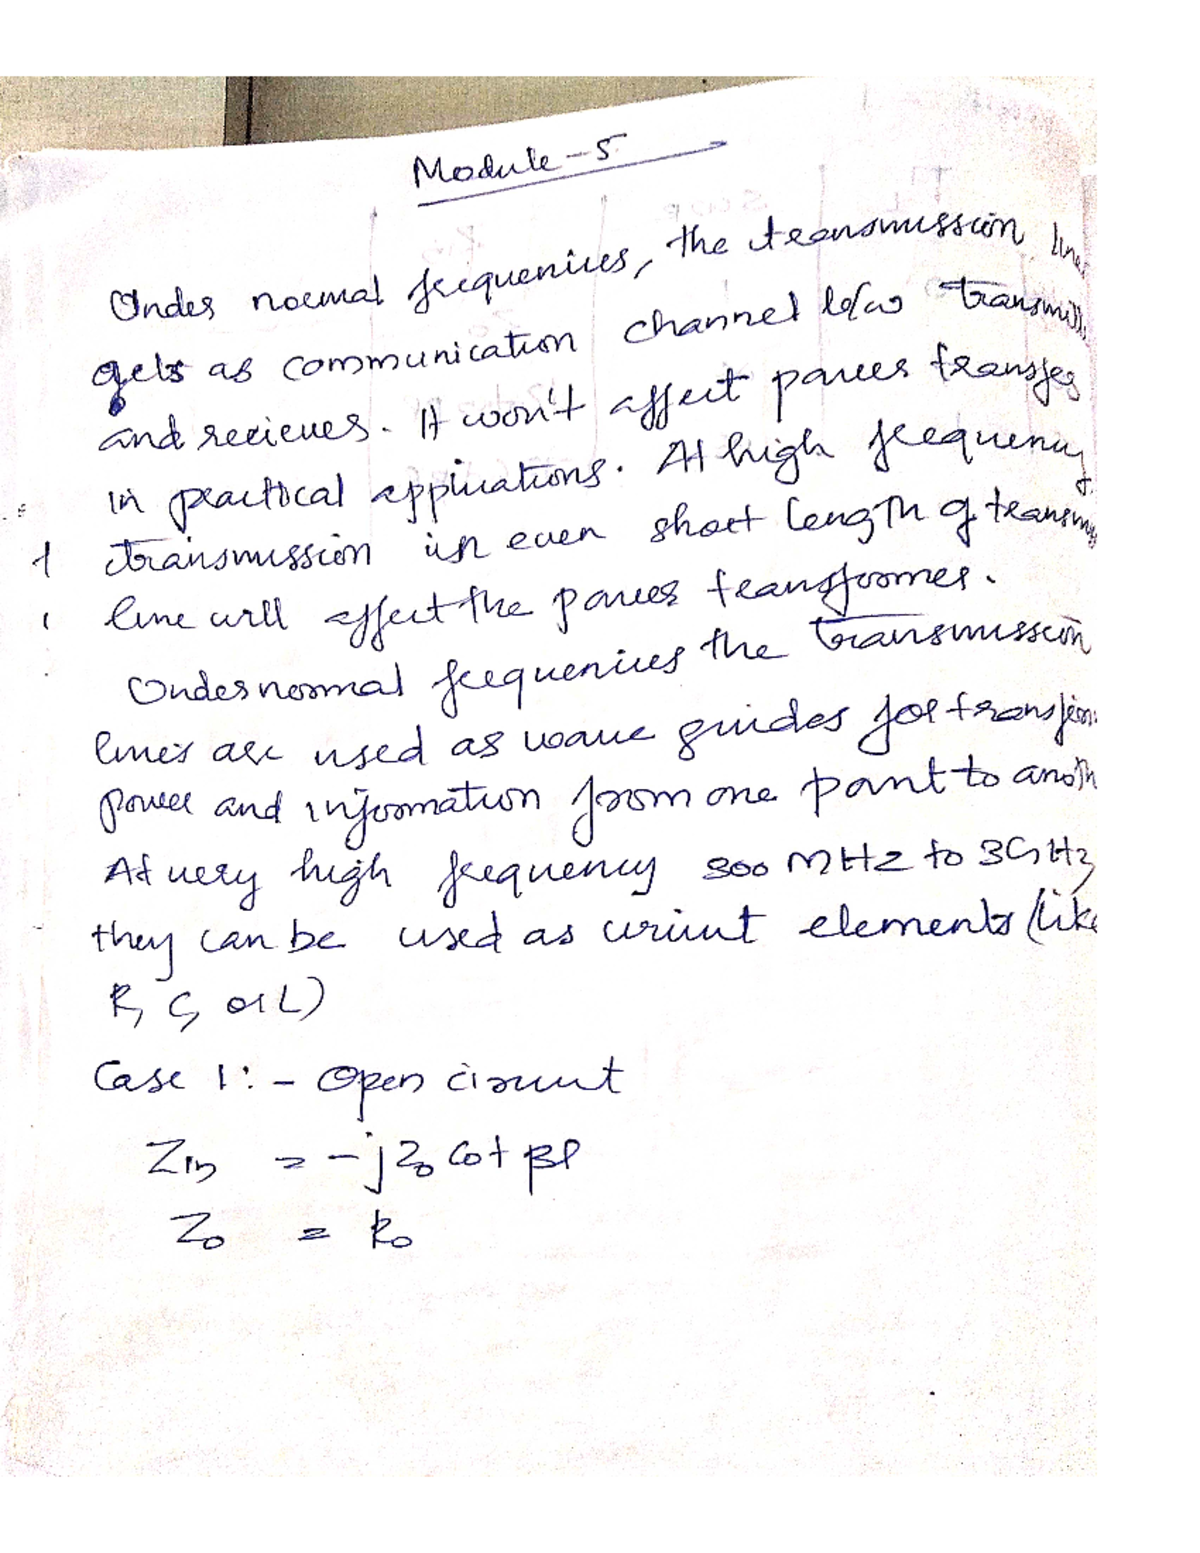 Module-5
Under normal frequencies, the transmission lines
gets as communication channel b/w transmitt
and recieves. It won't affect power transfer
in practical applications. At high frequency
transmission in even short length of transm
line will affect the power transformer.
Under normal frequencies the transmission
lines are used as wave guides for transferr
power and information from one point to anoth
At very high frequency 300 MHz to 3GHz
they can be used as circuit elements (like
R, C, or L)
Case 1: - Open circuit
Zin = -jZ0 cot βl
Z0 = R0